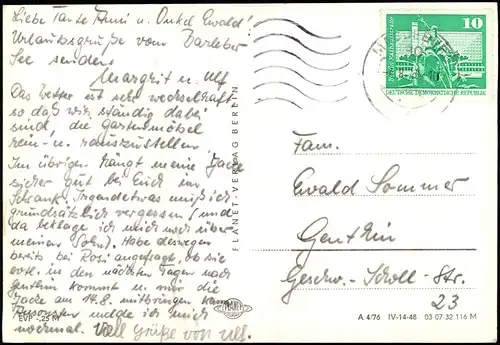 Liebe Tante Änni u. Onkel Ewald!
Urlaubsgrüße vom Barleber
See senden
Margrit u. Ulf
Das Wetter ist sehr wechselhaft
so daß wir ständig dabei
sind, die Gartenmöbel
rein- u. rauszustellen.
Im übrigen hängt meine Jacke
sicher gut bei Euch im
Schrank. Irgendetwas muß ich
grundsätzlich vergessen (und
da beklage ich mich noch über
meinen Sohn). Habe deswegen
bereits bei Rosi angefragt, ob sie
evtl. in den nächsten Tagen nach
Genthin kommt u. mir die
Jacke am 14.8. mitbringen kann.
Ansonsten melde ich mich
nochmal. Viele Grüße von Ulf.
EVP -,25 M
PLANET-VERLAG BERLIN
10
DEUTSCHE DEMOKRATISCHE REPUBLIK
Fam.
Ewald Sommer
Genthin
Geschw.-Scholl-Str.
23
A 4/76 IV-14-48 03 07 32 116 M